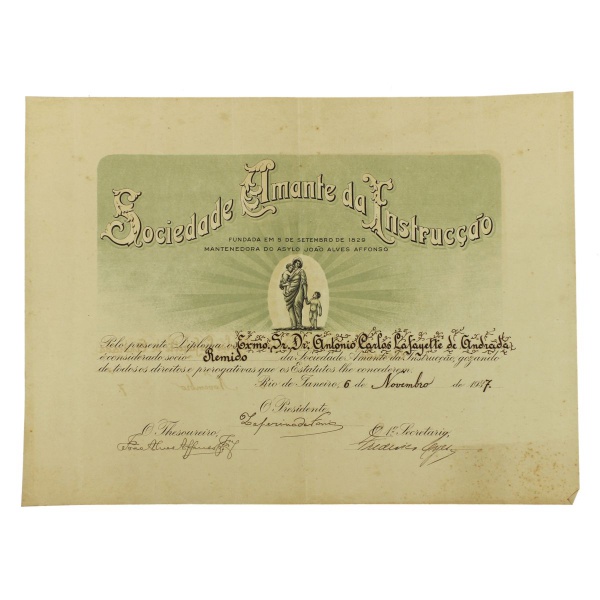 Sociedade Amante da Instrucção
FUNDADA EM 5 DE SETEMBRO DE 1829
MANTENEDORA DO ASYLO JOÃO ALVES AFFONSO
Pelo presente Diploma o Exmo. Sr. Dr. António Carlos Lafayette de Andrada,
é considerado socio Remido da Sociedade Amante da Instrucção, gozando
de todos os direitos e prerogativas que os Estatutos lhe concederem.
Rio de Janeiro, 6 de Novembro de 1937.
O Presidente,
O Thesoureiro,
O 1º Secretario,
João Alves Affonso